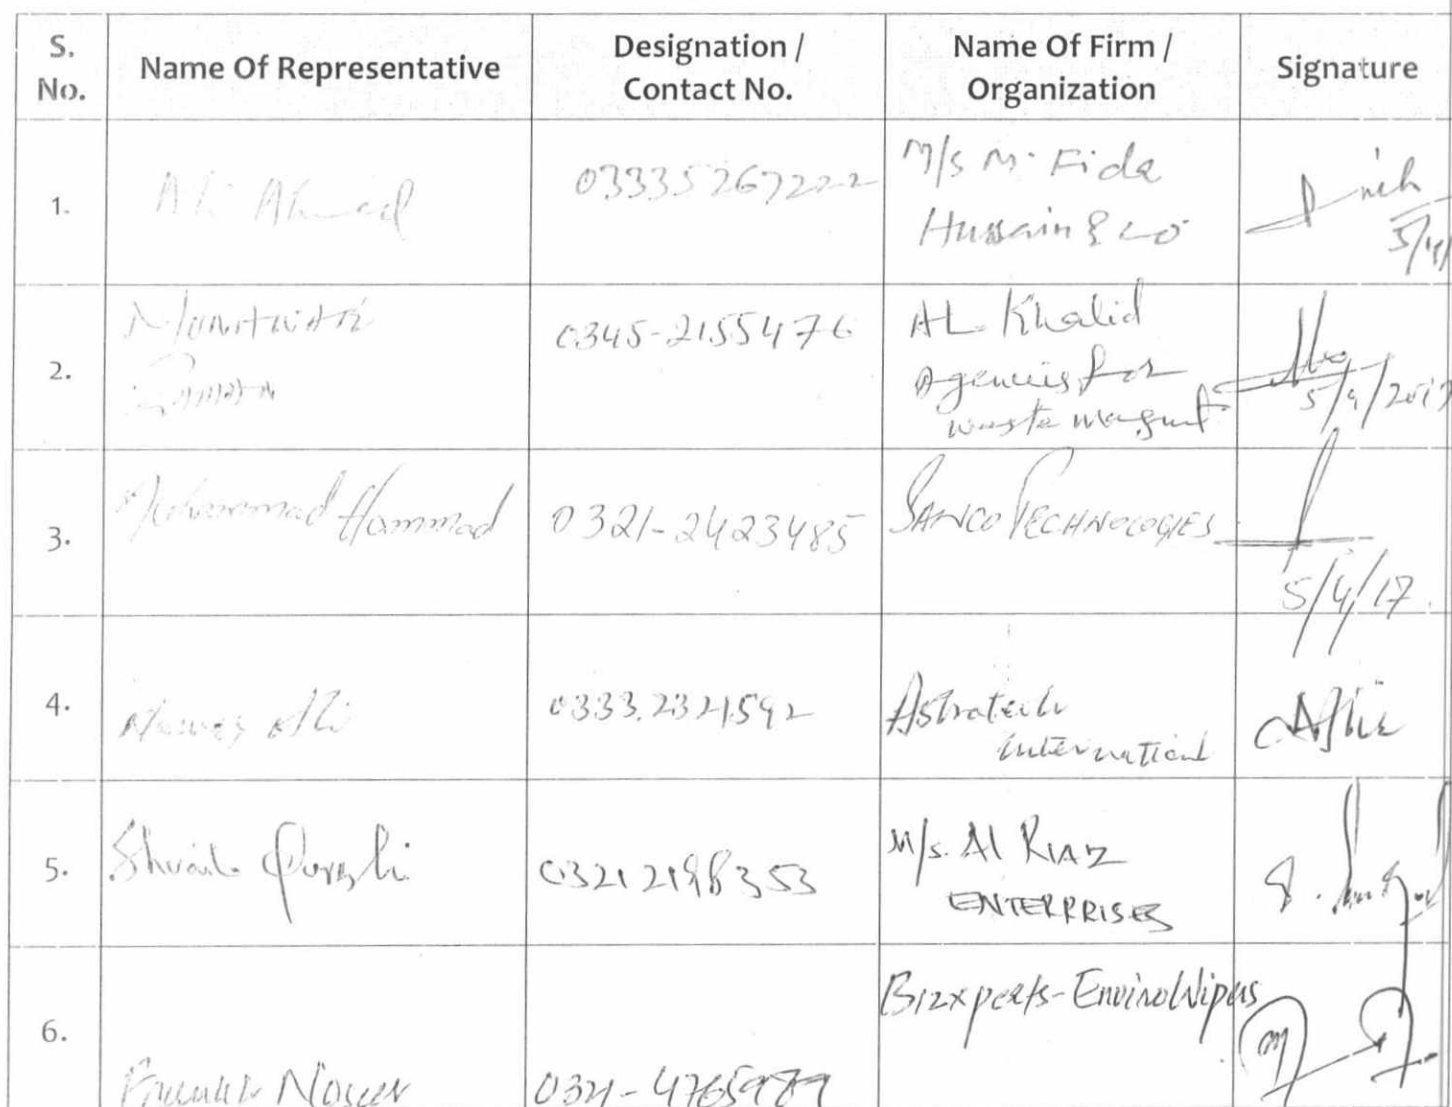 S. No. Name Of Representative Designation / Contact No. Name Of Firm / Organization Signature
1. Ali Ahmad 03335267222 M/s M. Fida
Hussain & co
2. 0345-2155476 AL Khalid
Agencies for
waste
5/4/2017
3. Muhammad Hammad 0321-2423485 SAMCO TECHNOLOGIES
5/4/17
4. Ali 0333.2321592 Astratech
international
5. Shoaib Qureshi 0321 2198353 M/s. Al RIAZ
ENTERPRISES
6. Bizxperts-EnviroWipes
0321-4765979